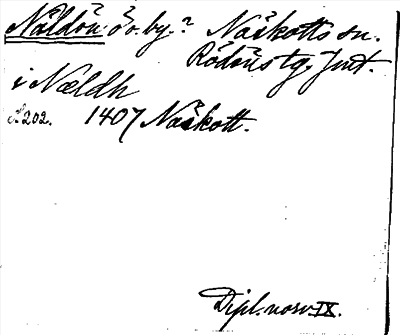 Näldön ö o. by? Näskotts sn.
Rödöns tg. Jmt.
i Næeldh
s. 202. 1407 Näskott.
Dipl. norv. IX.